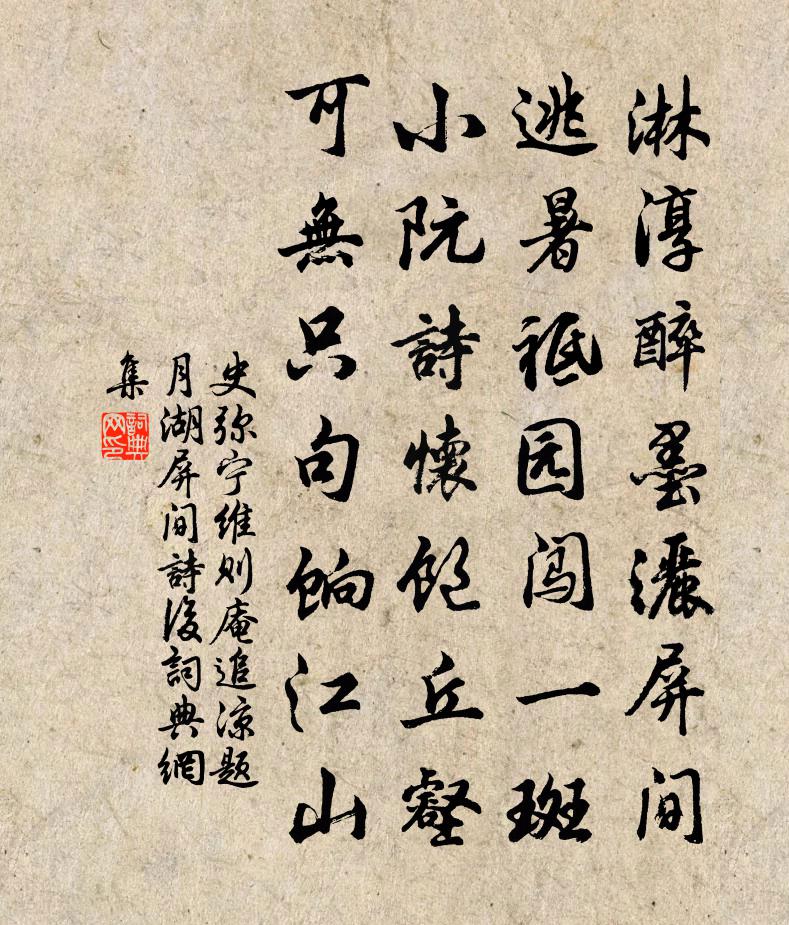 淋淳醉墨灑屏间
逃暑祗园闯一斑
小阮詩懷飽丘壑
可無只句餉江山
史弥宁维则庵追涼题
月湖屏间詩後詞典網
集
詞典
网印